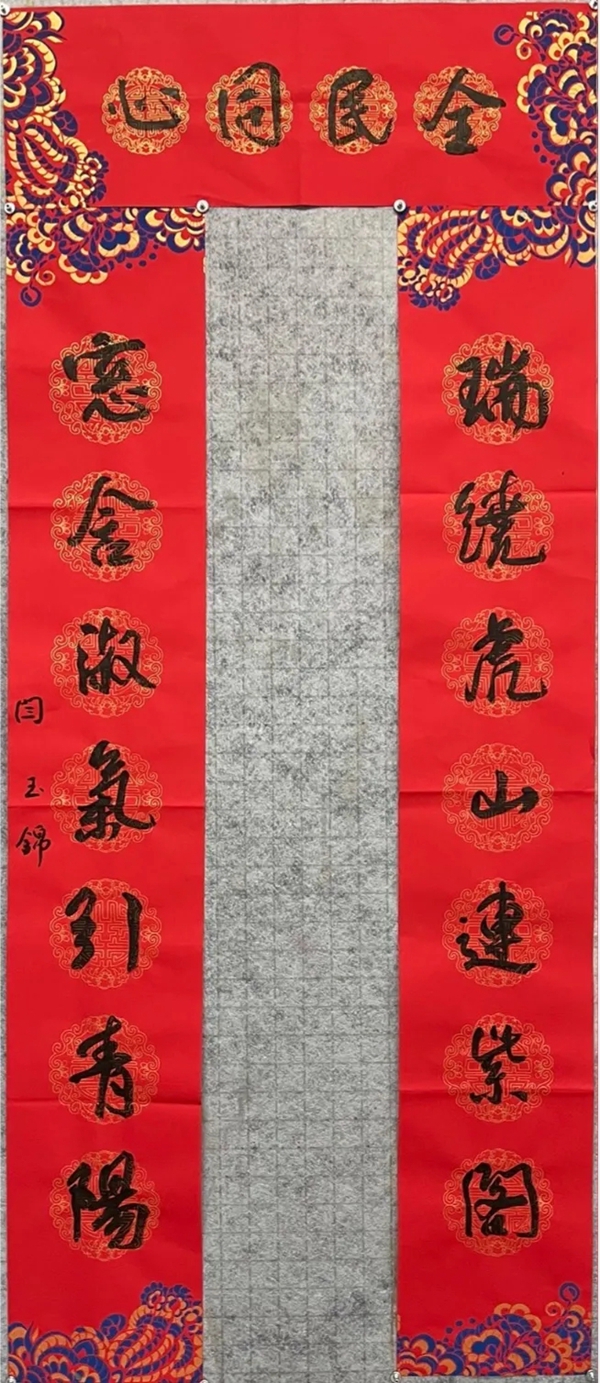 全民同心
瑞繞虎山連紫閣
窓含淑氣引青陽
闫玉錦